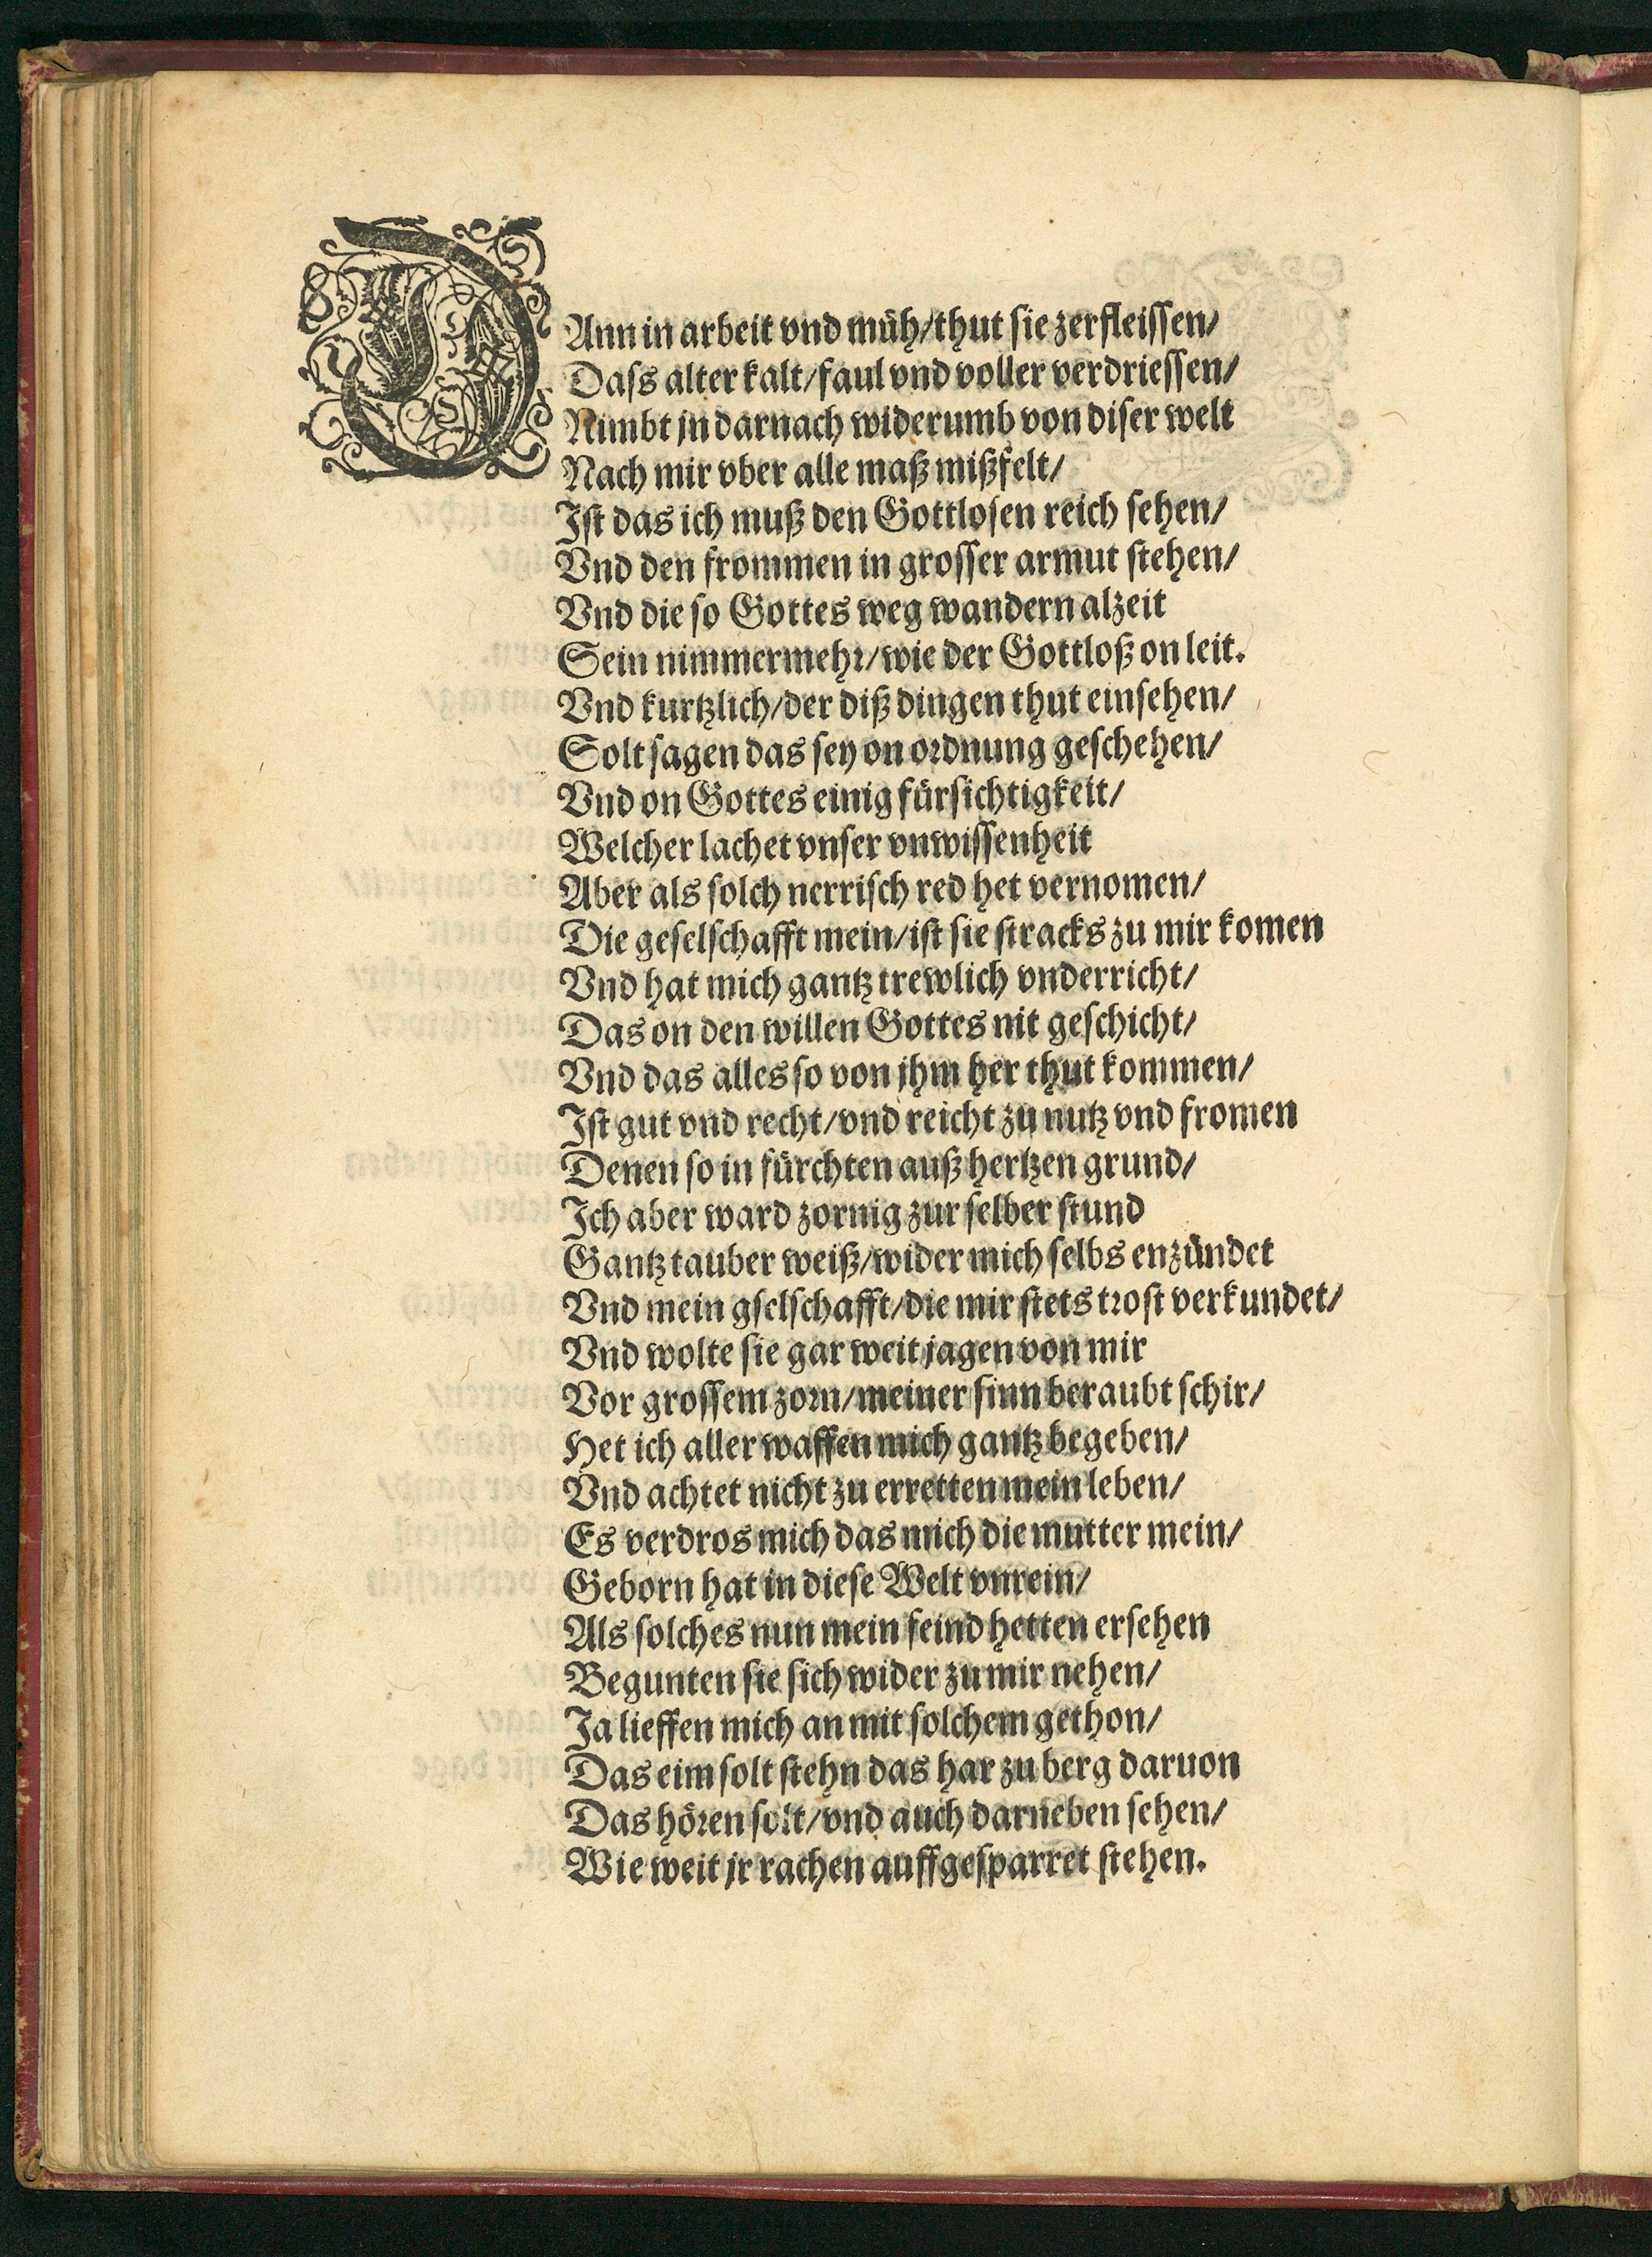 DAnn in arbeit vnd müh/thut sie zerfleissen/
Dass alter kalt/faul vnd voller verdriessen/
Nimbt jn darnach widerumb von diser welt
Nach mir vber alle maß mißfelt/
Ist das ich muß den Gottlosen reich sehen/
Vnd den frommen in grosser armut stehen/
Vnd die so Gottes weg wandern alzeit
Sein nimmermehr/wie der Gottloß on leit.
Vnd kurtzlich/der diß dingen thut einsehen/
Solt sagen das sey on ordnung geschehen/
Vnd on Gottes einig fürsichtigkeit/
Welcher lachet vnser vnwissenheit
Aber als solch nerrisch red het vernomen/
Die geselschafft mein/ist sie stracks zu mir komen
Vnd hat mich gantz trewlich vnderricht/
Das on den willen Gottes nit geschicht/
Vnd das alles so von jhm her thut kommen/
Ist gut vnd recht/vnd reicht zu nutz vnd fromen
Denen so in fürchten auß hertzen grund/
Ich aber ward zornig zur selber stund
Gantz tauber weiß/wider mich selbs enzündet
Vnd mein gselschafft/die mir stets trost verkundet/
Vnd wolte sie gar weit jagen von mir
Vor grossem zorn/meiner sinn beraubt schir/
Het ich aller waffen mich gantz begeben/
Vnd achtet nicht zu erretten mein leben/
Es verdros mich das mich die mutter mein/
Geborn hat in diese Welt vnrein/
Als solches nun mein feind hetten ersehen
Begunten sie sich wider zu mir nehen/
Ja lieffen mich an mit solchem gethon/
Das eim solt stehn das har zu berg daruon
Das hören solt/vnd auch darneben sehen/
Wie weit jr rachen auffgesparret stehen.